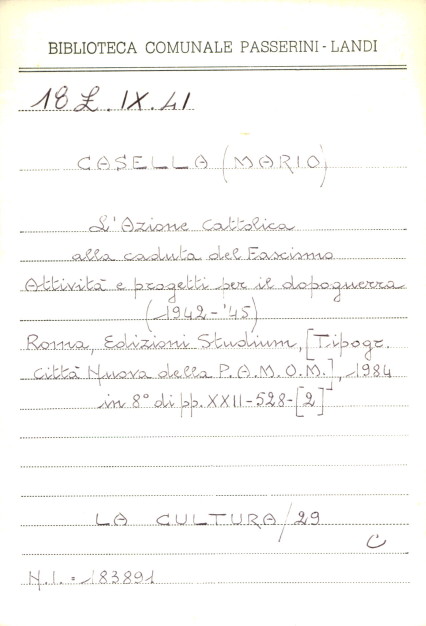 BIBLIOTECA COMUNALE PASSERINI-LANDI
18 L. IX. 41
CASELLA (MARIO)
L'Azione Cattolica
alla caduta del Fascismo
Attività e progetti per il dopoguerra
(1942-'45)
Roma, Edizioni Studium, [Tipogr.
Città Nuova della P.A.M.O.M.], 1984
in 8° di pp. XXII-528-[2]
LA CULTURA/29
C
N.I. = 183891